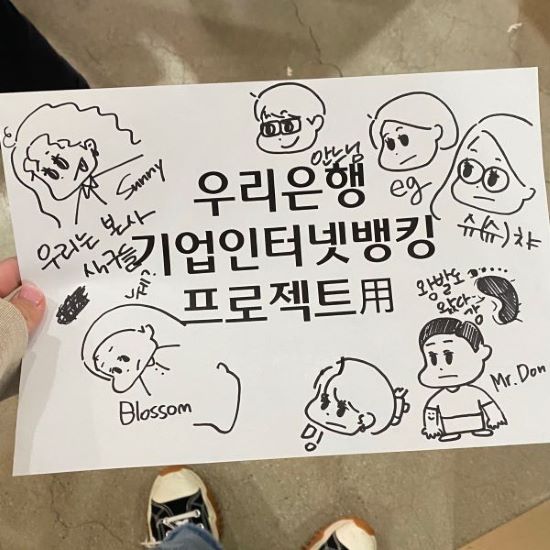 Sunny
안느님
eg
슈(슈)챠
우리은행
기업인터넷뱅킹
프로젝트用
우리는 본사
식구들
Blossom
왕발도
왔다감
Mr. Don